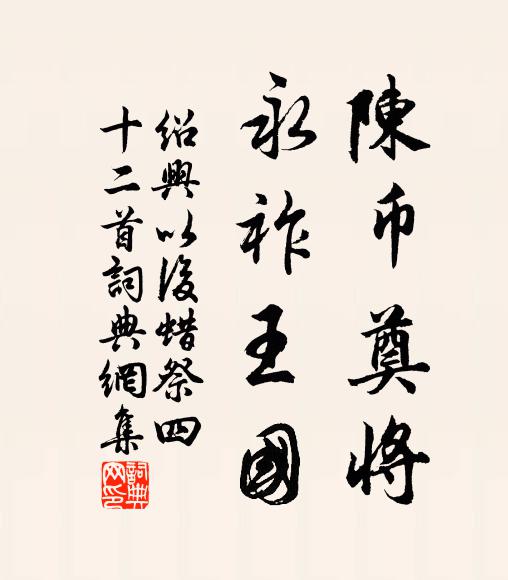 陳币奠將
永祚王國
紹興以後蜡祭四
十二首詞典網集
詞典
网印